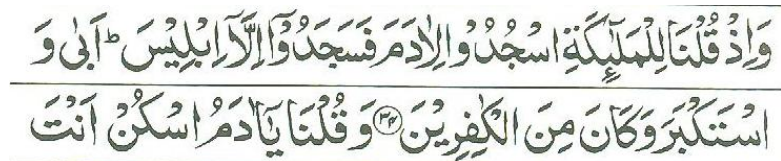 وَاِذْ قُلْنَا لِلْمَلٰٓئِكَةِ اسْجُدُوْا لِاٰدَمَ فَسَجَدُوْٓا اِلَّآ اِبْلِيْسَ ؕ اَبٰى وَ
اسْتَكْبَرَ وَكَانَ مِنَ الْكٰفِرِيْنَ ﴿۳۴﴾ وَ قُلْنَا يٰٓاٰدَمُ اسْكُنْ اَنْتَ